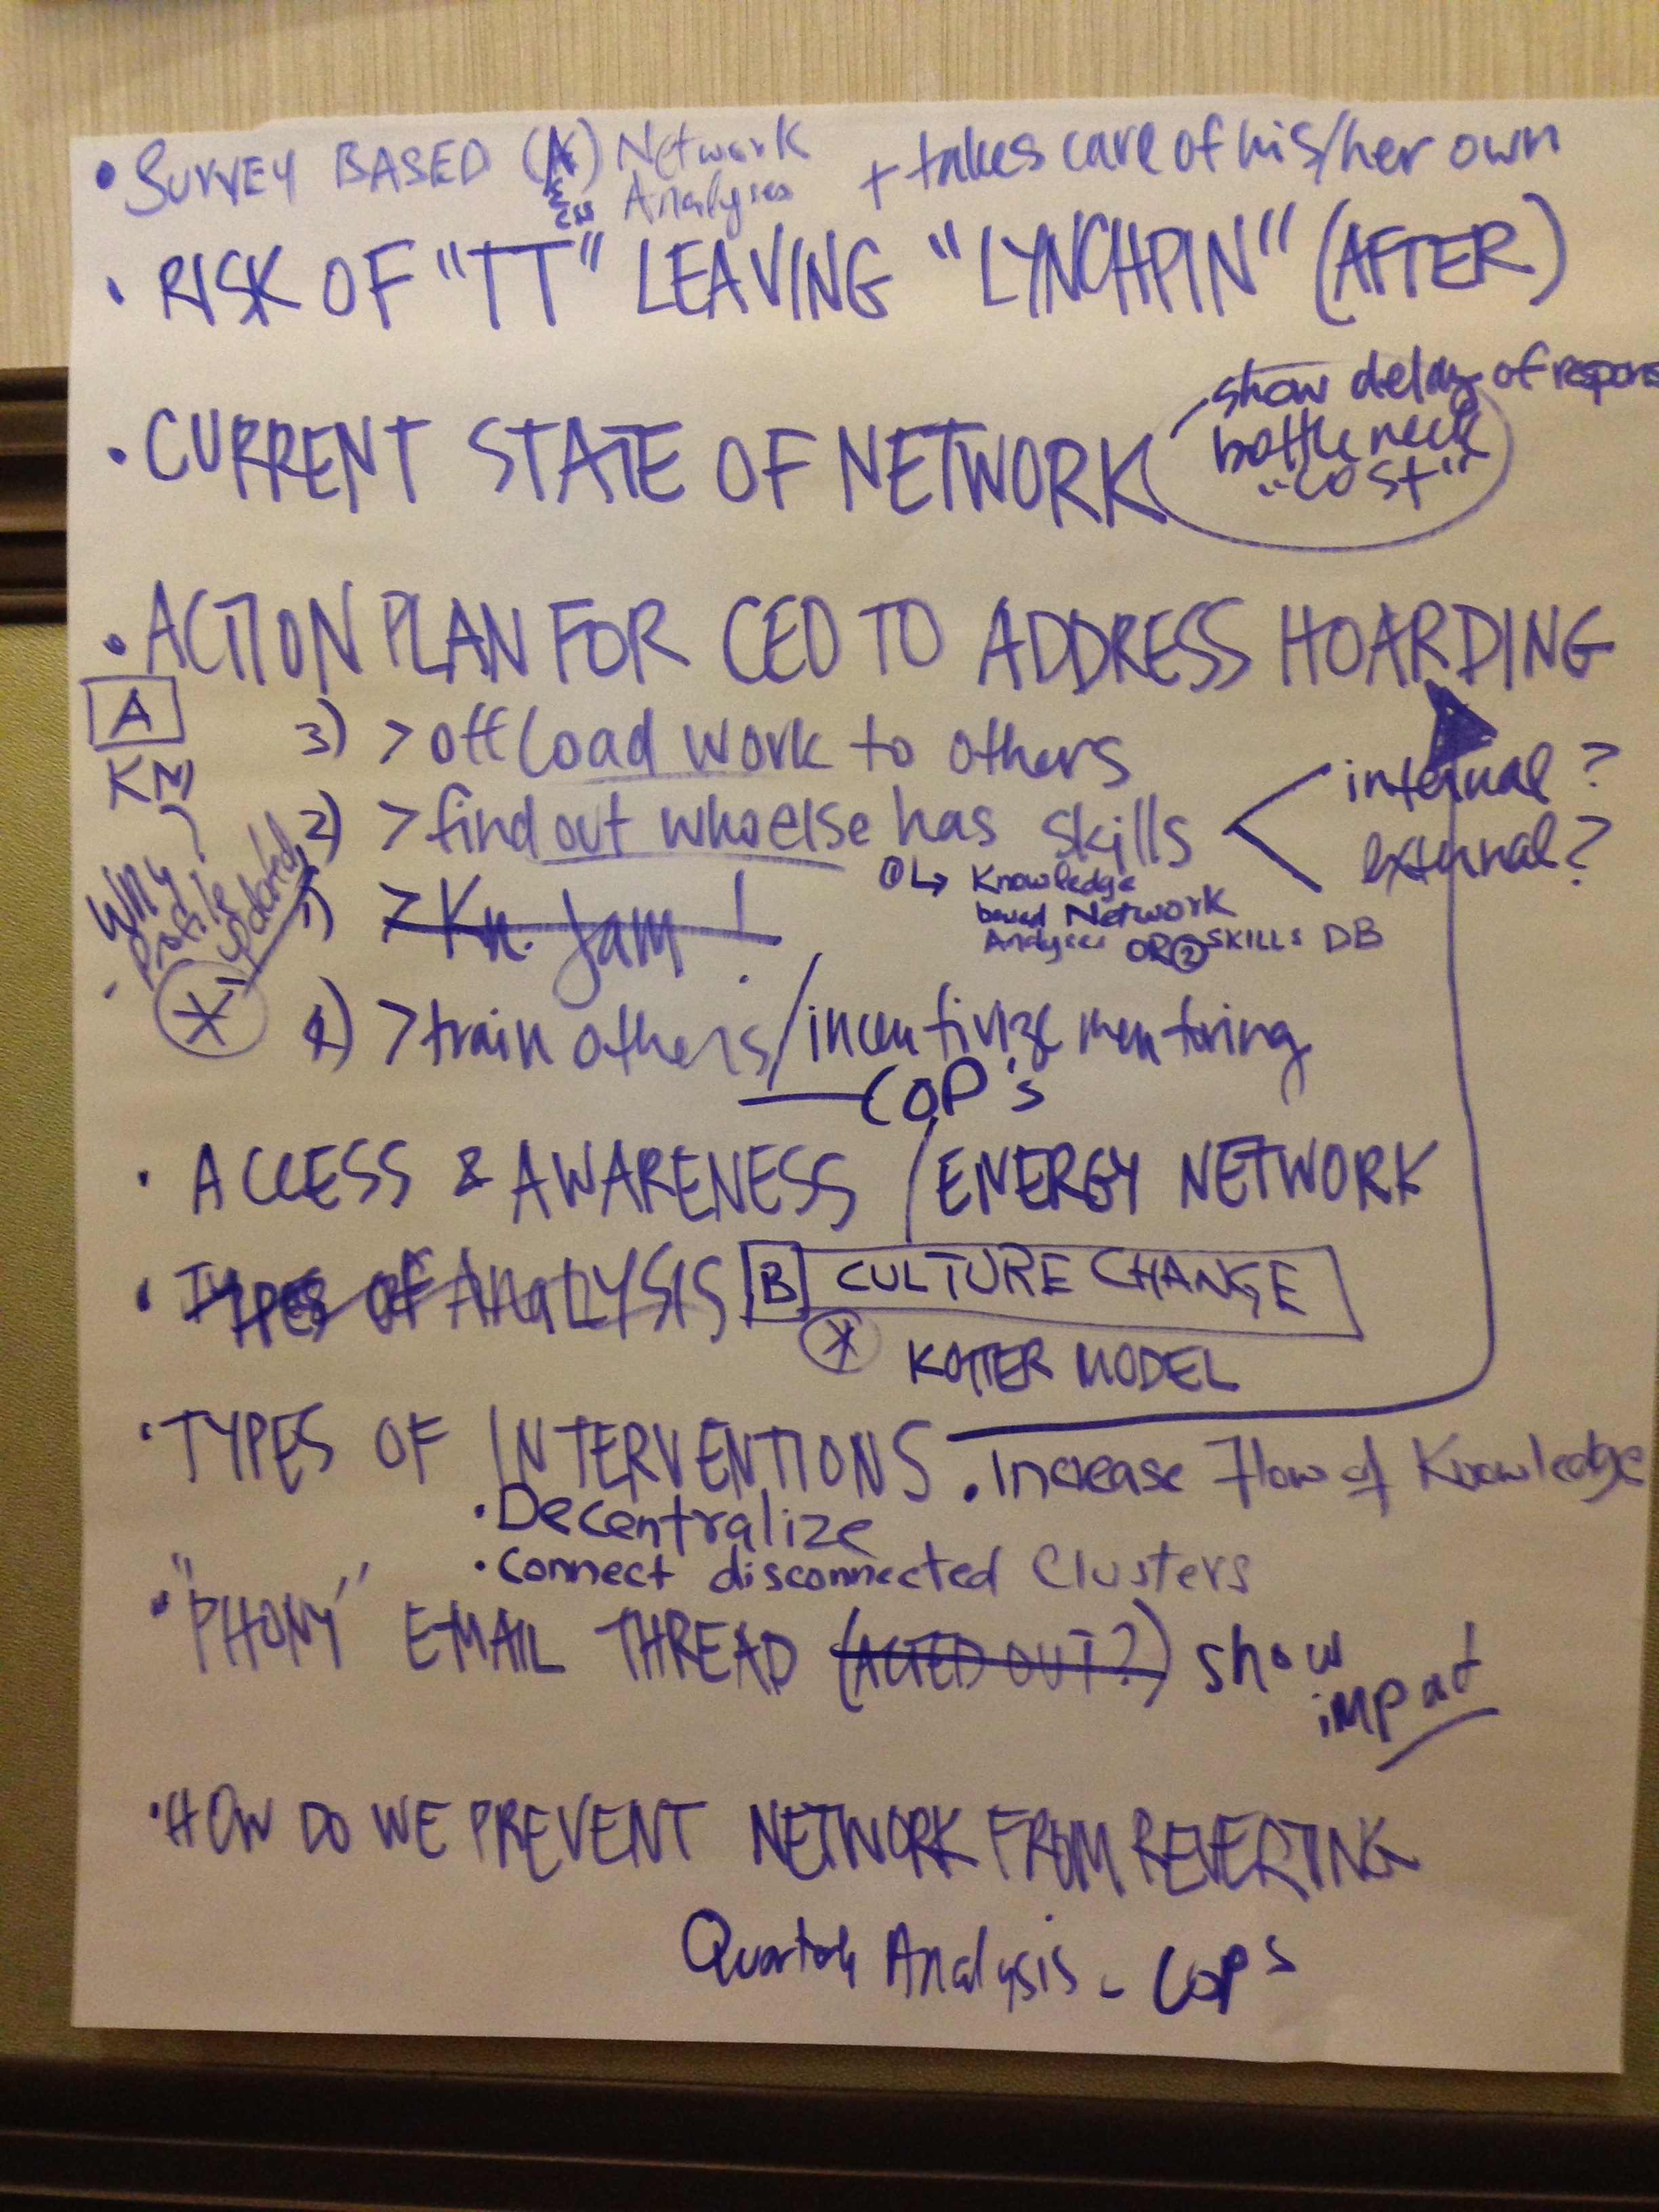 • SURVEY BASED (A) Network Analysis + takes care of his/her own
• RISK OF "TT" LEAVING "LYNCHPIN" (AFTER)
show delay of respons
• CURRENT STATE OF NETWORK bottleneck
"cost"
• ACTION PLAN FOR CEO TO ADDRESS HOARDING
A
KM
3) > offload work to others
internal?
2) > find out who else has skills
external?
①↳ Knowledge
based Network
Analysis OR ② SKILLS DB
Why
- profile
updated
1) > Kn. Jam!
*
4) > train others/incentivize mentoring
COP's
• ACCESS & AWARENESS / ENERGY NETWORK
• TYPES OF ANALYSIS B CULTURE CHANGE
* KOTTER MODEL
• TYPES OF INTERVENTIONS • Increase Flow of Knowledge
• Decentralize
• Connect disconnected Clusters
• "PHONY" EMAIL THREAD (ACTED OUT?) show
impact
• HOW DO WE PREVENT NETWORK FROM REVERTING
Analysis - COPs